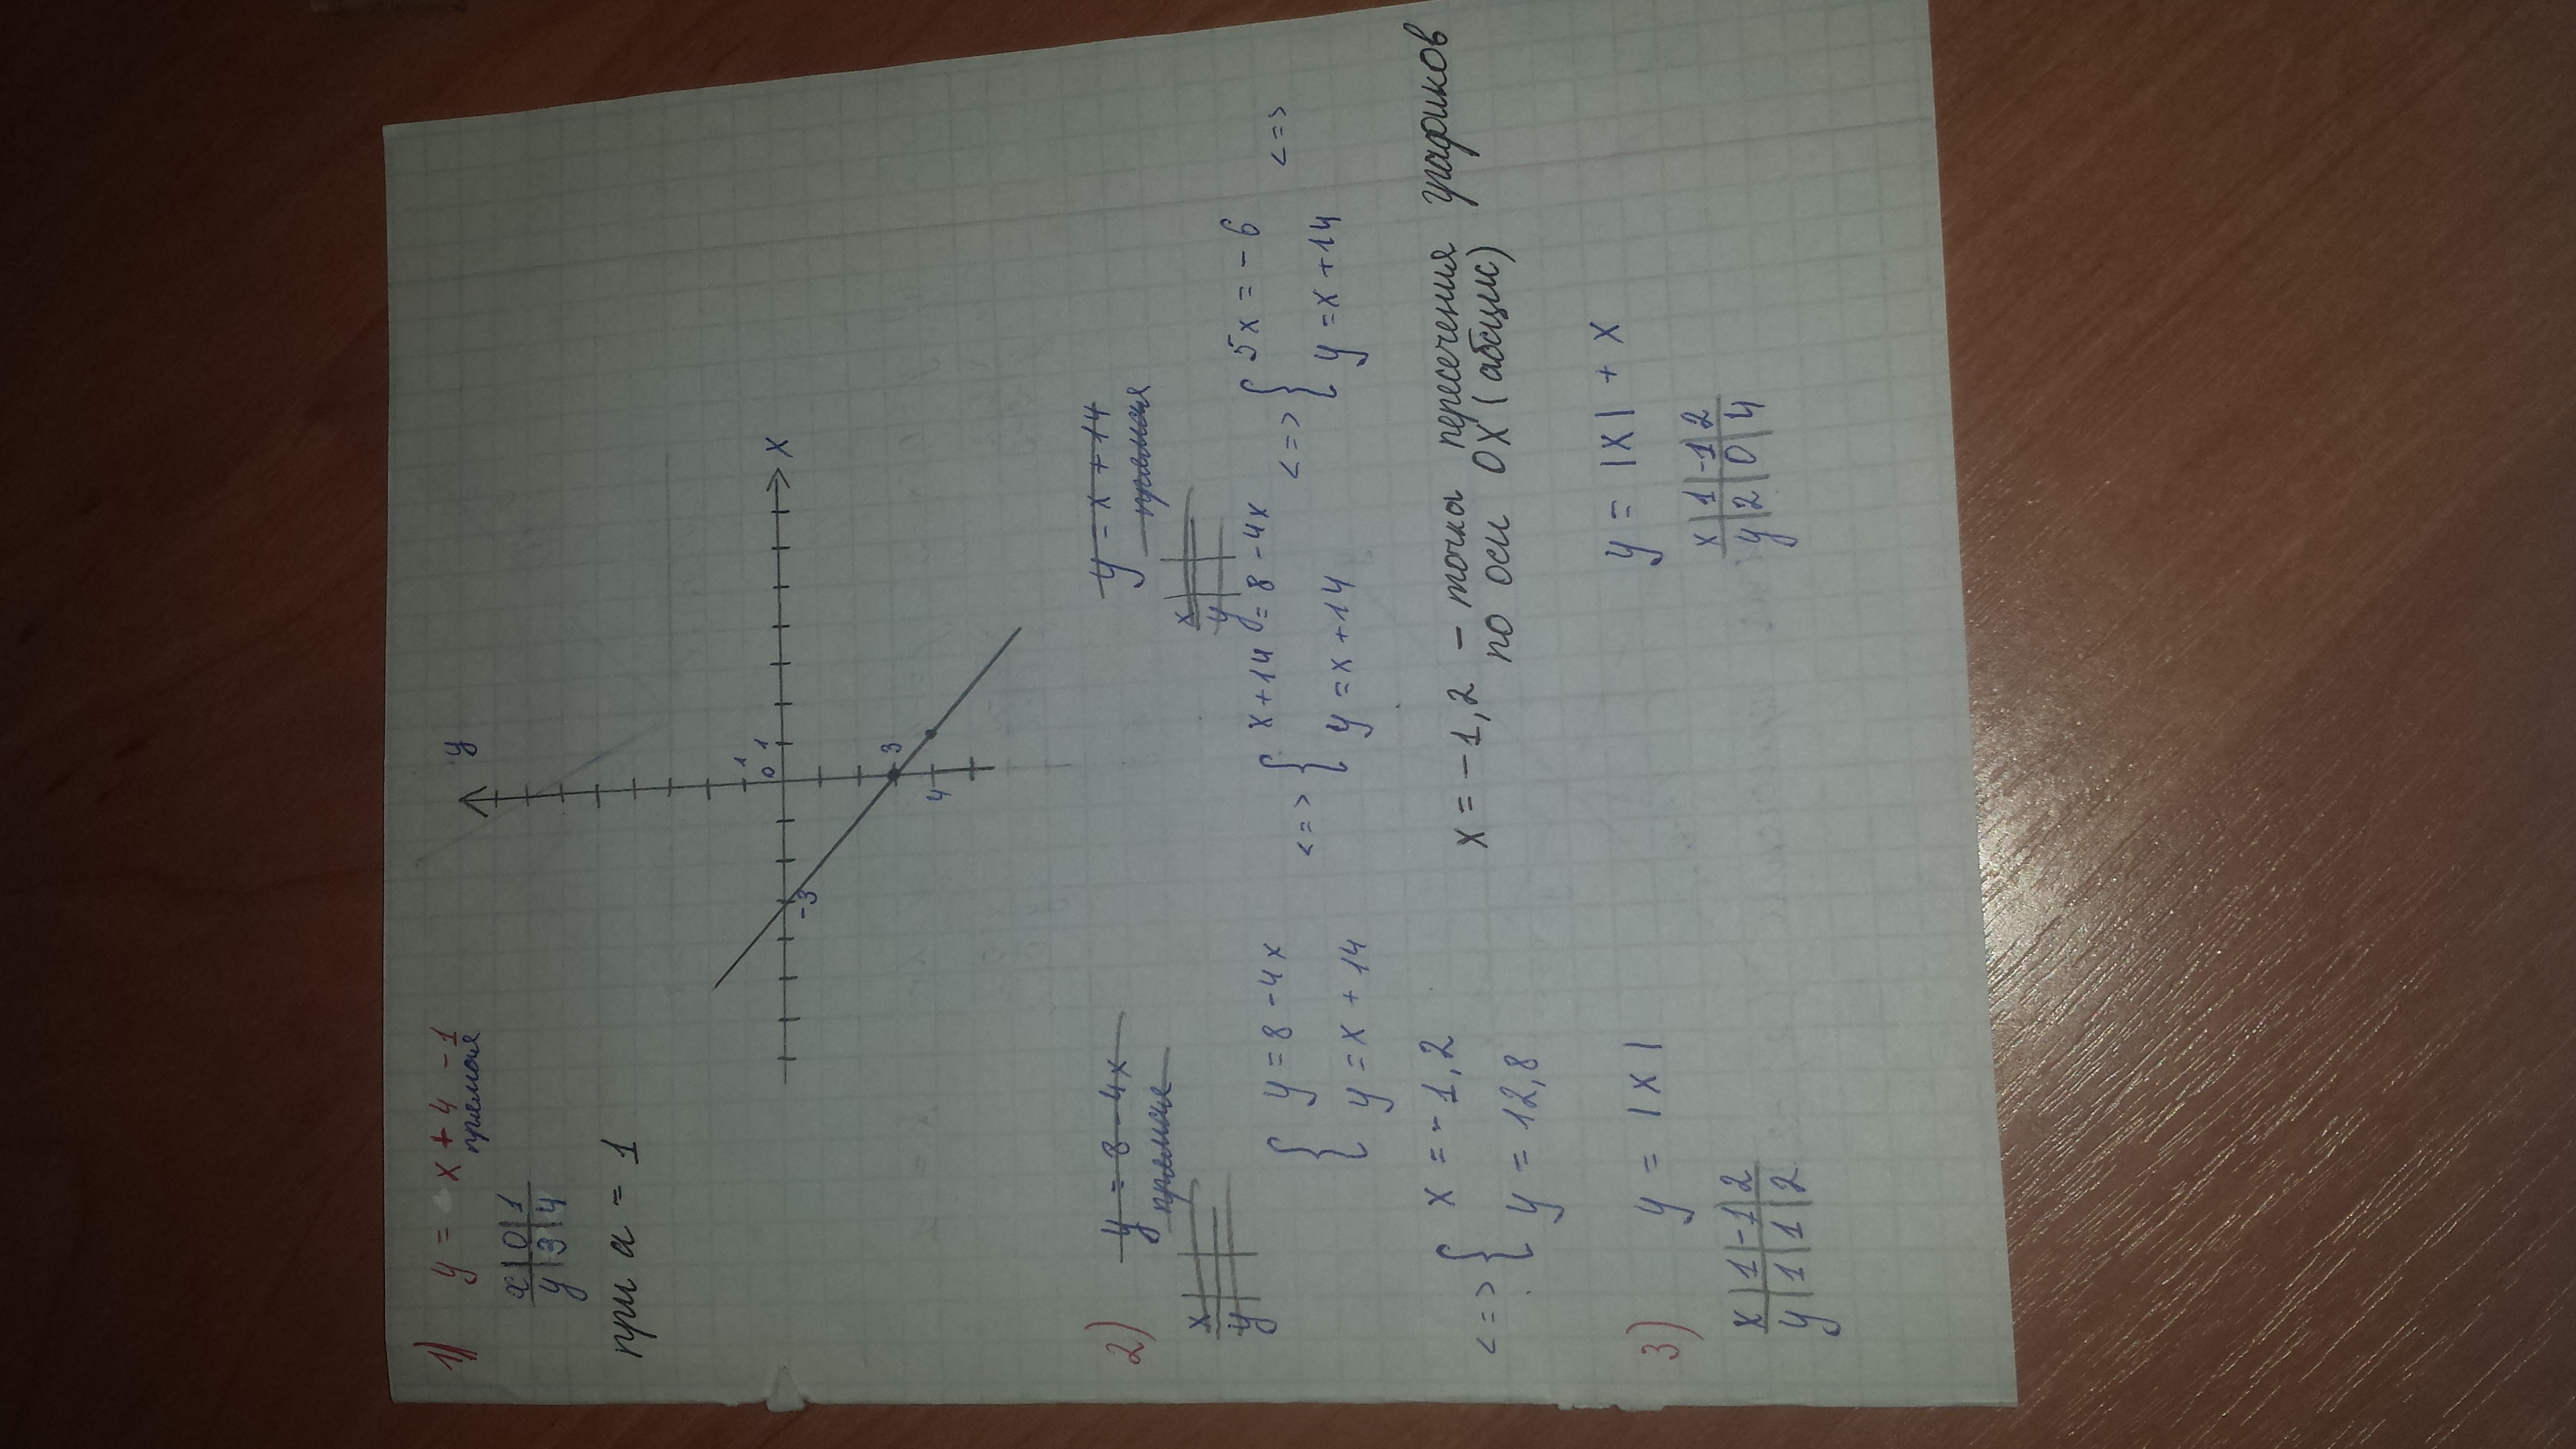 1) y = x + 4 - 1
прямая
x | 0 | 1
y | 3 | 4
при a = 1
y
1
0 1
x
-3
3
4
2) y = 8 - 4x
прямая
x
y
y = x + 14
прямая
x
y
{ y = 8 - 4x
y = x + 14
<=> { x + 14 = 8 - 4x
y = x + 14
<=> { 5x = -6
y = x + 14
<=>
<=> { x = -1,2
y = 12,8
x = -1,2 - точка пересечения графиков
по оси OX (абцис)
3) y = |x|
x | 1 | -1 | 2
y | 1 | 1 | 2
y = |x| + x
x | 1 | -1 | 2
y | 2 | 0 | 4